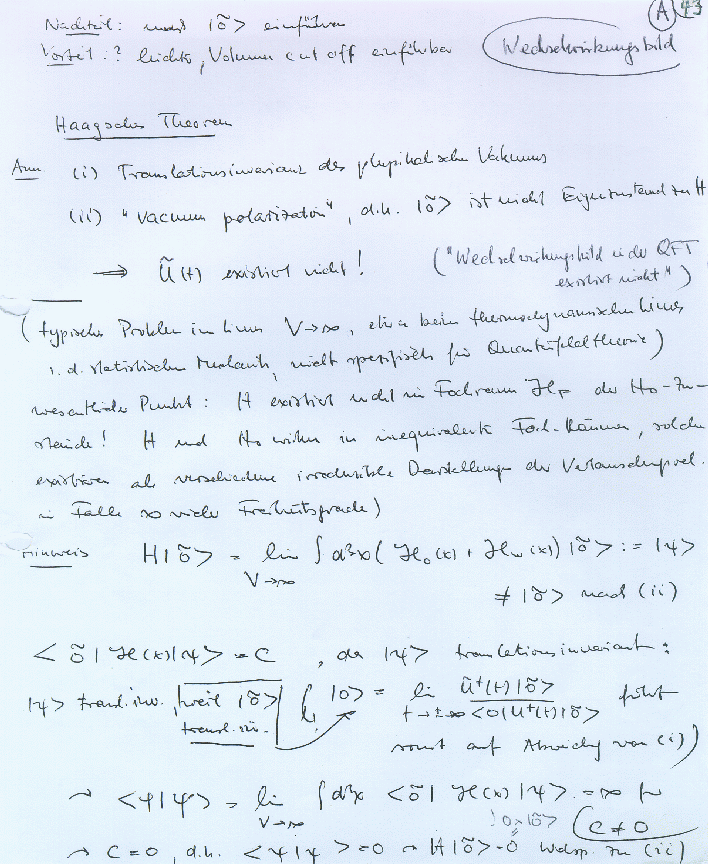 (A) 43
Nachteil: muß |õ> einführen
Vorteil: ? leichte, Volumen cut off einführbar
Wechselwirkungsbild
Haagsches Theorem
Ann (i) Translationsinvarianz des physikalischen Vakuums
(ii) "Vacuum polarization", d.h. |õ> ist nicht Eigenzustand zu H
⟹ Ũ(t) existiert nicht! ("Wechselwirkungsbild in der QFT
existiert nicht")
(typisches Problem im Limes V→∞, etwa beim thermodynamischen Limes
i. d. statistischen Mechanik, nicht spezifisch für Quantenfeldtheorie)
wesentlicher Punkt: H existiert nicht im Fockraum ℋ_F der H₀-Zu-
stände! H und H₀ wirken in inequivalente Fock-Räumen, solche
existieren als verschiedene irreduzible Darstellungen der Vertauschungsrel.
im Falle ∞ vieler Freiheitsgrade)
Hinweis H|õ> = lim ∫d³x(ℋ₀(x) + ℋ_w(x))|õ> := |ψ>
V→∞
≠ |õ> nach (ii)
<õ|ℋ(x)|ψ> = C , da |ψ> translationsinvariant:
|ψ> transl. inv. weil |õ> transl. inv. ( |0> = lim Ũ⁺(t)|õ> / <0|U⁺(t)|õ> führt
t→±∞
sonst auf Abweichg von (i))
⤳ <ψ|ψ> = lim ∫d³x <õ|ℋ(x)|ψ> = ∞ für
V→∞
C≠0
! 0×|õ>
⤳ C=0, d.h. <ψ|ψ> = 0 ⤳ H|õ> = 0 Wdsp. zu (ii)